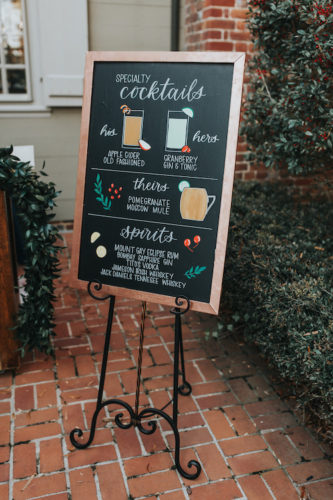 SPECIALTY
cocktails
his
hers
APPLE CIDER
OLD FASHIONED
CRANBERRY
GIN & TONIC
theirs
POMEGRANATE
MOSCOW MULE
spirits
MOUNT GAY ECLIPSE RUM
BOMBAY SAPPHIRE GIN
TITOS VODKA
JAMESON IRISH WHISKEY
JACK DANIELS TENNESEE WHISKEY